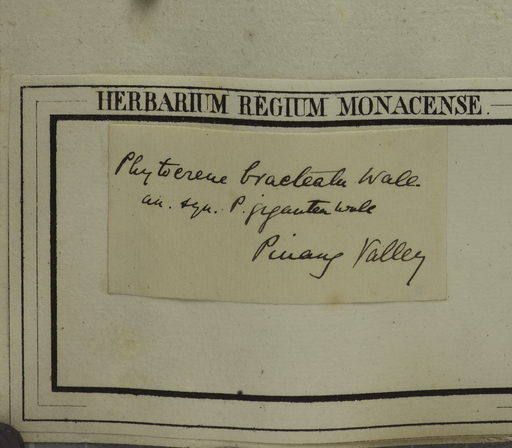 HERBARIUM REGIUM MONACENSE.
Phytocrene bracteata Wall.
an. syn. P. gigantea Wall
Pinang Valley